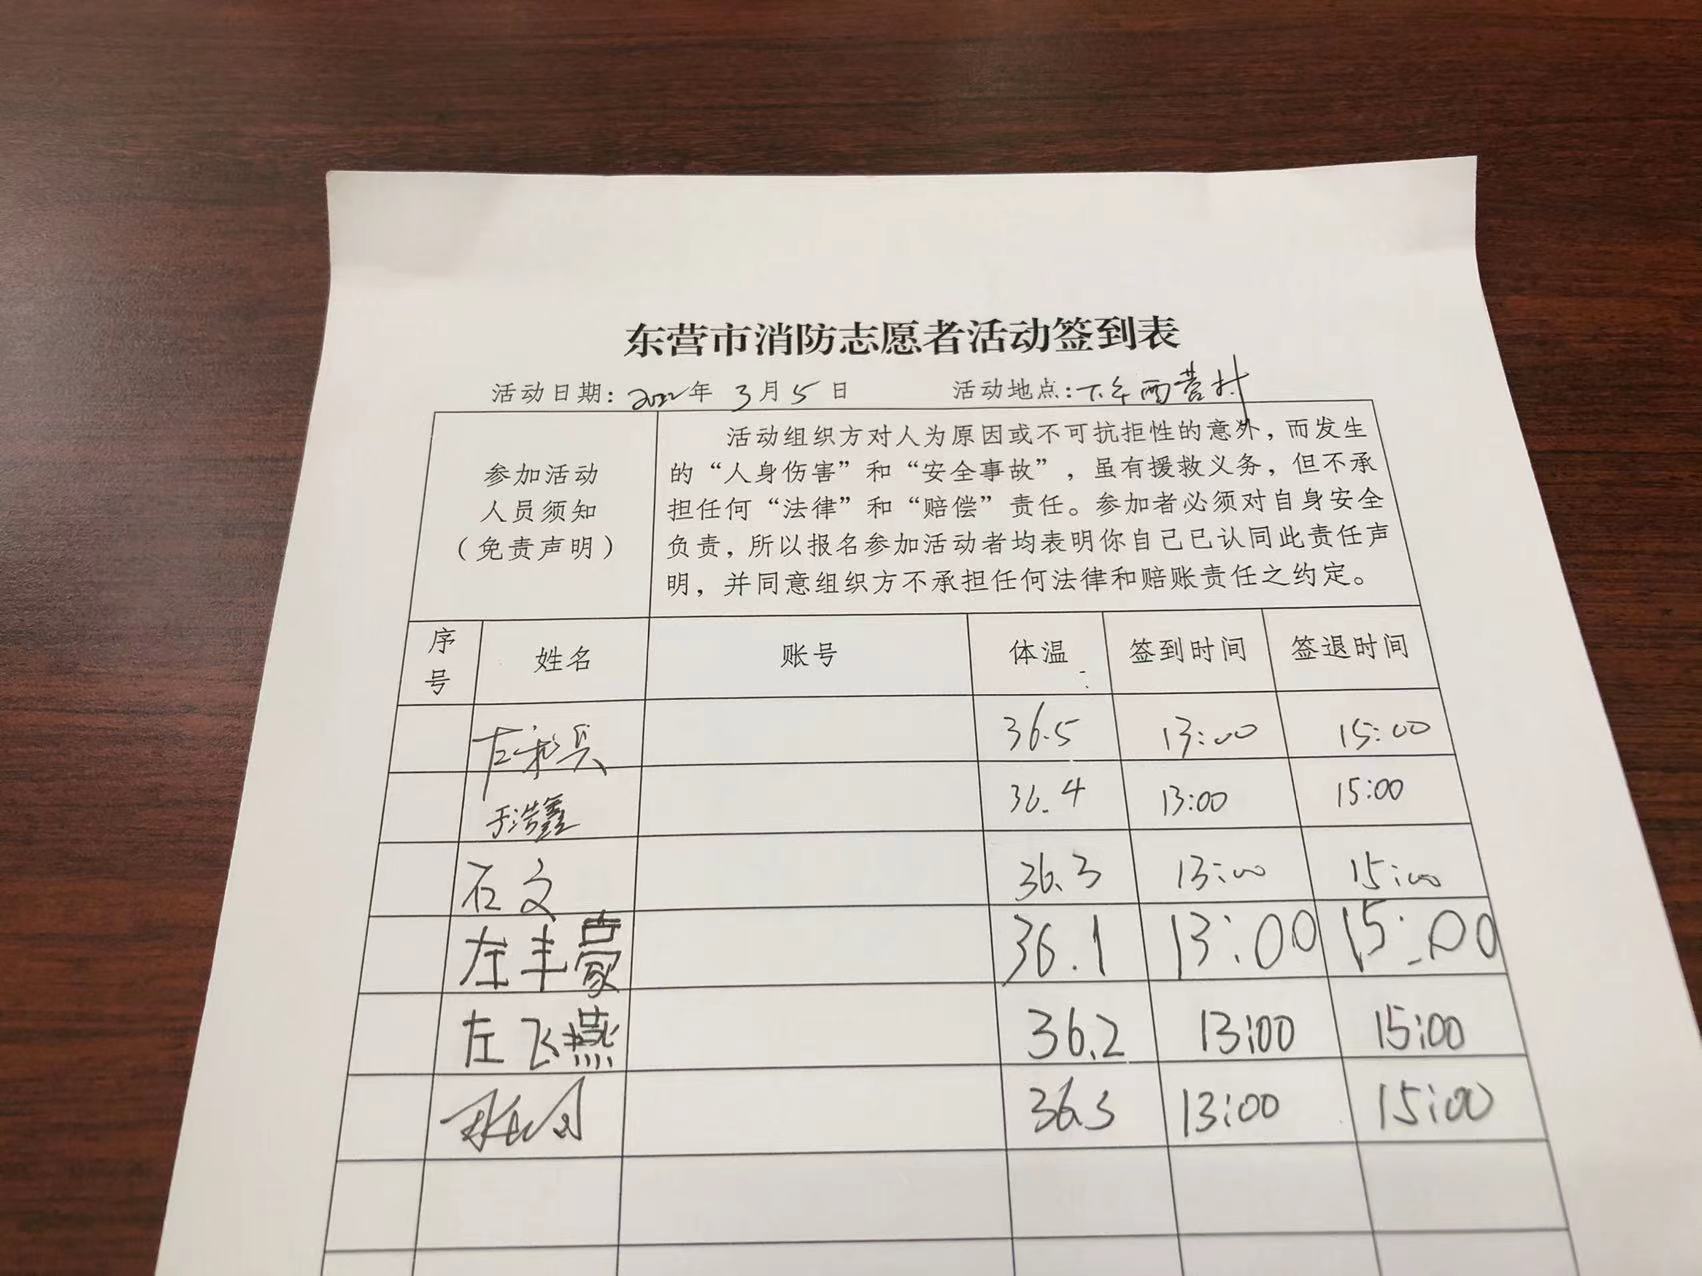 东营市消防志愿者活动签到表
活动日期：2022年 3月 5日 活动地点：下午西营村
参加活动
人员须知
（免责声明）
活动组织方对人为原因或不可抗拒性的意外，而发生
的“人身伤害”和“安全事故”，虽有援救义务，但不承
担任何“法律”和“赔偿”责任。参加者必须对自身安全
负责，所以报名参加活动者均表明你自己已认同此责任声
明，并同意组织方不承担任何法律和赔账责任之约定。
序号 姓名 账号 体温 签到时间 签退时间
左 兵 36.5 13:00 15:00
于浩鑫 36.4 13:00 15:00
石文 36.3 13:00 15:00
左丰豪 36.1 13:00 15:00
左飞燕 36.2 13:00 15:00
36.3 13:00 15:00